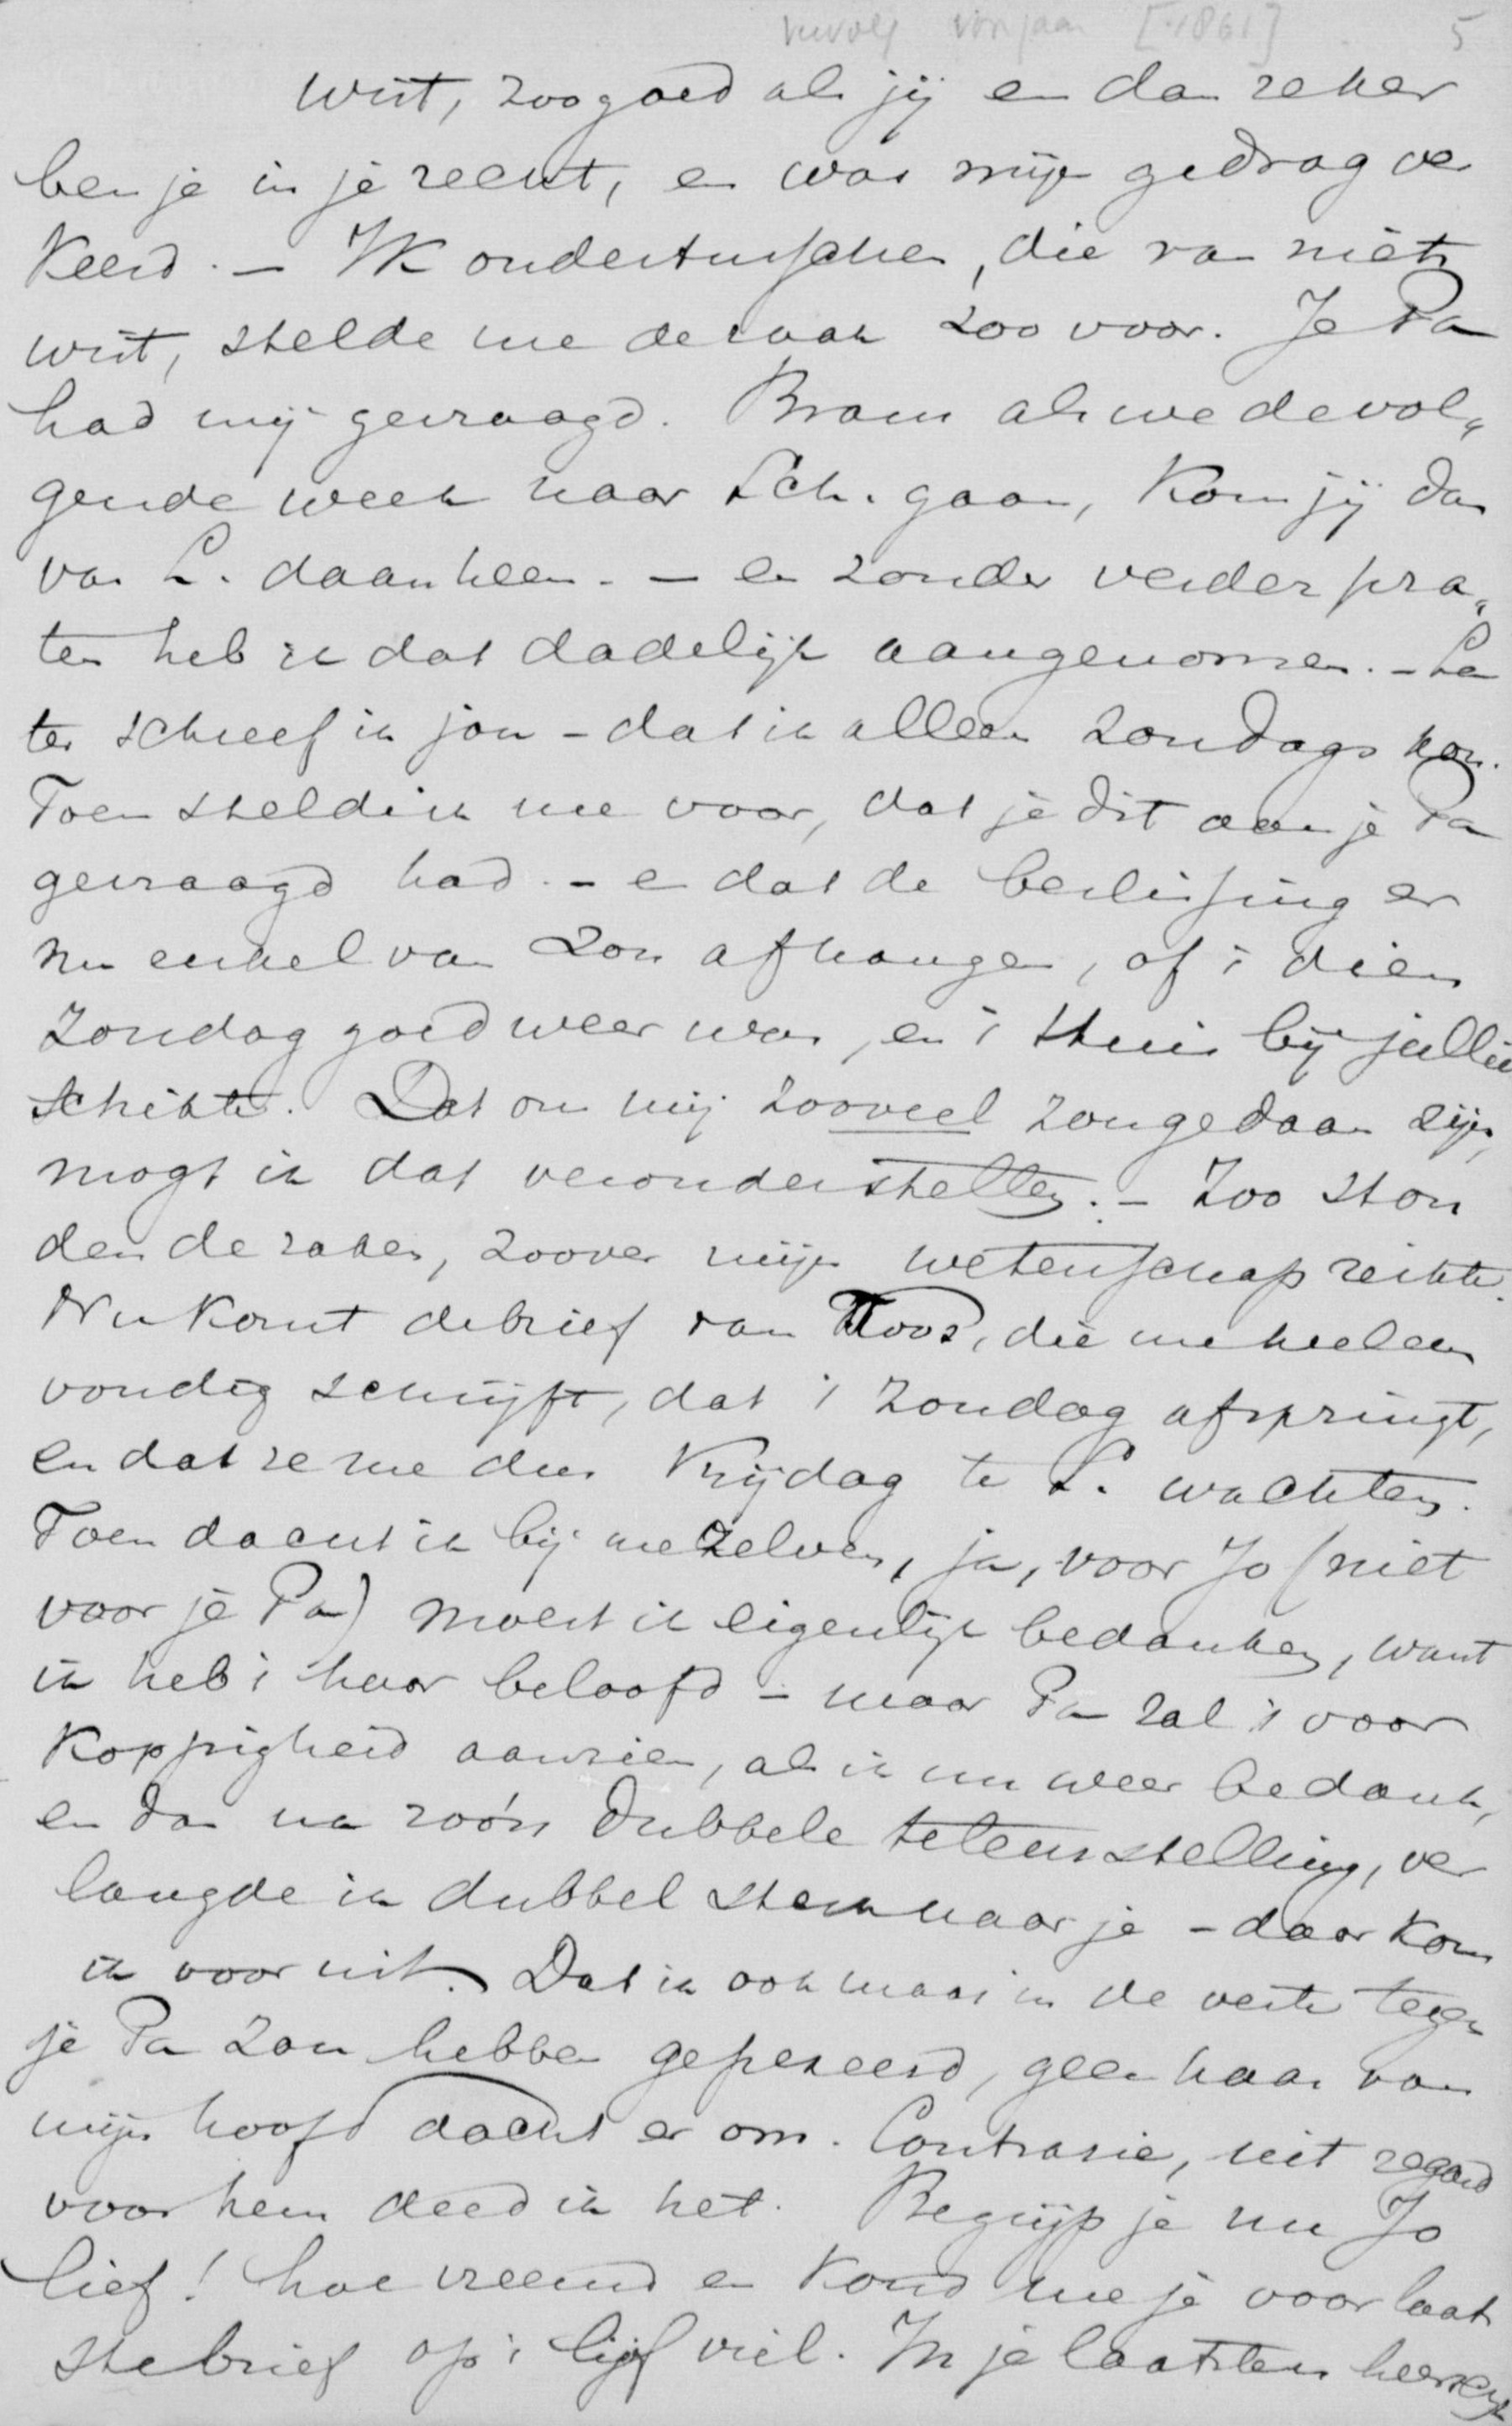 vervolg voorjaar [1861] 5
wist, zoo goed als jij en dan zeker
ben je in je recht, en was mijn gedrag ver
keerd. – Ik ondertusschen, die van niets
wist, stelde me de zaak zoo voor. Je Pa
had mij gevraagd. Bram als we de vol„
gende week naar Sch. gaan, kom jij dan
van L. daar heen. – en zonder verder pra„
ten heb ik dat dadelijk aangenomen. – La
ter schreef ik jou – dat ik alleen Zondags kon.
Toen steldik me voor, dat je dit aan je Pa
gevraagd had. – en dat de beslissing er
nu enkel van zou afhangen, of 't dien
Zondag goed weer was, en 't thuis bij jullie
schikte. Dat om mij zooveel zou gedaan zijn,
mogt ik dat veronderstellen. – Zoo ston
den de zaken, zoover mijn wetenschap reikte.
Nu komt de brief van Koos, die me heel een
voudig schrijft, dat 't Zondag afspringt,
en dat ze me dus Vrijdag te L. wachten.
Toen dacht ik bij mezelven, ja, voor Jo (niet
voor je Pa) moest ik eigenlijk bedanken, want
ik heb 't haar beloofd – maar Pa zal 't voor
koppigheid aanzien, als ik nu weer bedank,
en dan na zoo'n dubbele teleurstelling, ver
langde ik dubbel sterk naar je – daar kom
ik voor uit. Dat ik ook maar in de verte tegen
je Pa zou hebben gepekeerd, geen haar van
mijn hoofd dacht er om. Contrarie, uit regard
voor hem deed ik het. Begrijp je nu Jo
lief! hoe vreemd en koud me je voorlaat
ste brief op 't lijf viel. In je laatsten heersch